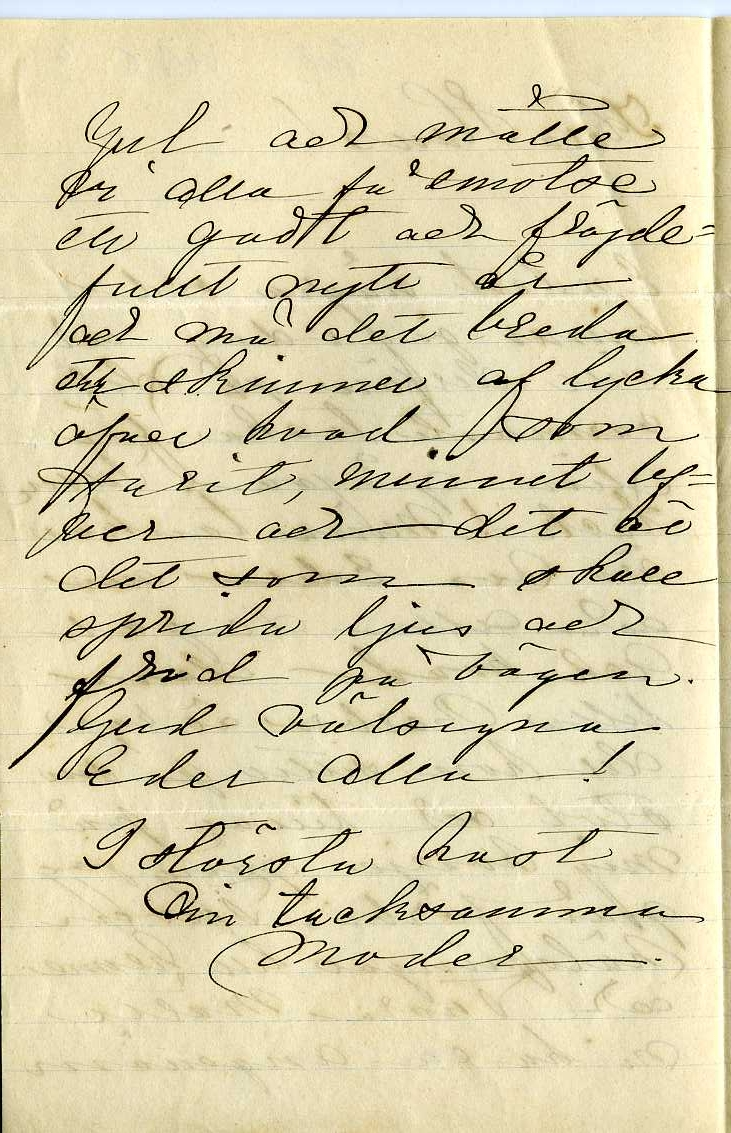 Jul och måtte
vi alla få emotse
ett godt och fröjde-
fullt nytt år
och må det breda
ett skimmer af lycka
öfver hvad som
varit, minnet lef-
ver och det är
det som skall
sprida ljus och
frid på vägen.
Gud välsigna
Eder alla!
I största hast
Din tacksamma
Moder.